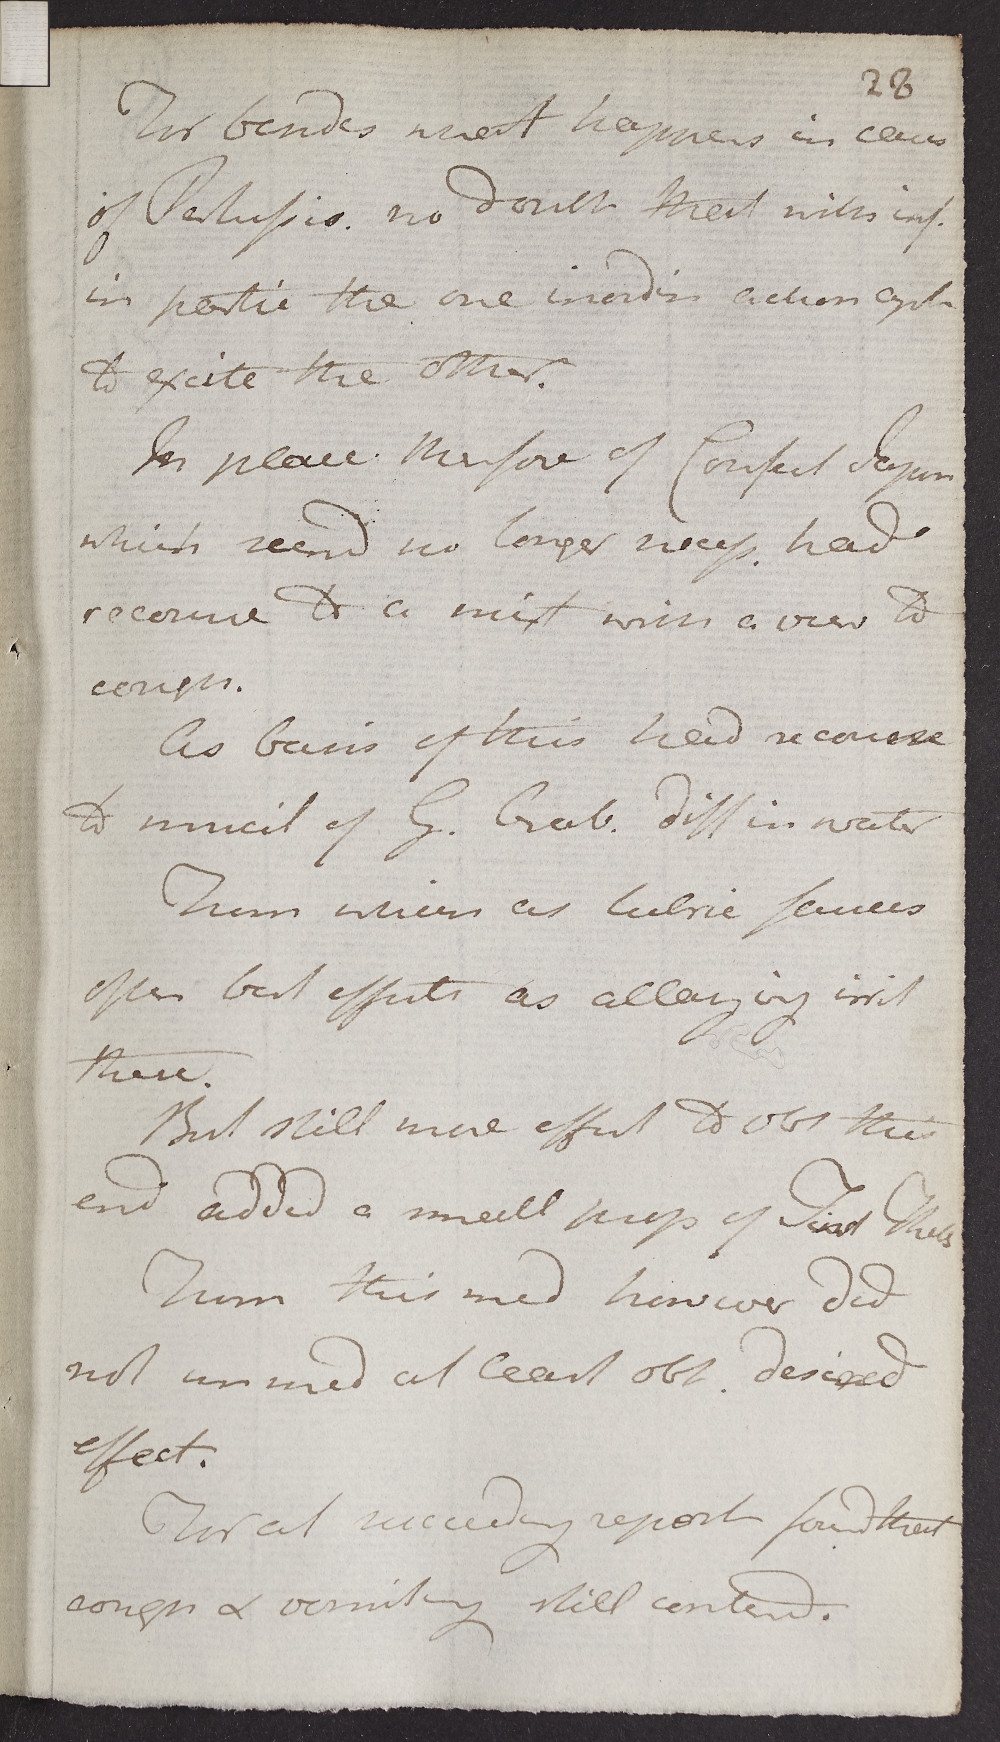 28
For besides what happens in cases
of Pertussis. no doubt that with
in partic the one inordin action apt
to excite the other.
In place therefore of Confect Japon
which seemd no longer necess. had
recourse to a mixt with a view to
cough.
As basis of this had recourse
to mucil of G. Arab. diff in water
From which as lubric fauces
often best effects as allaying irrit
there.
But still more effect to obt this
end added a small prop of Tinct Theb
From this med however did
not immed at least obt. desired
effect.
For at succeeding report found that
cough & vomiting still contend.